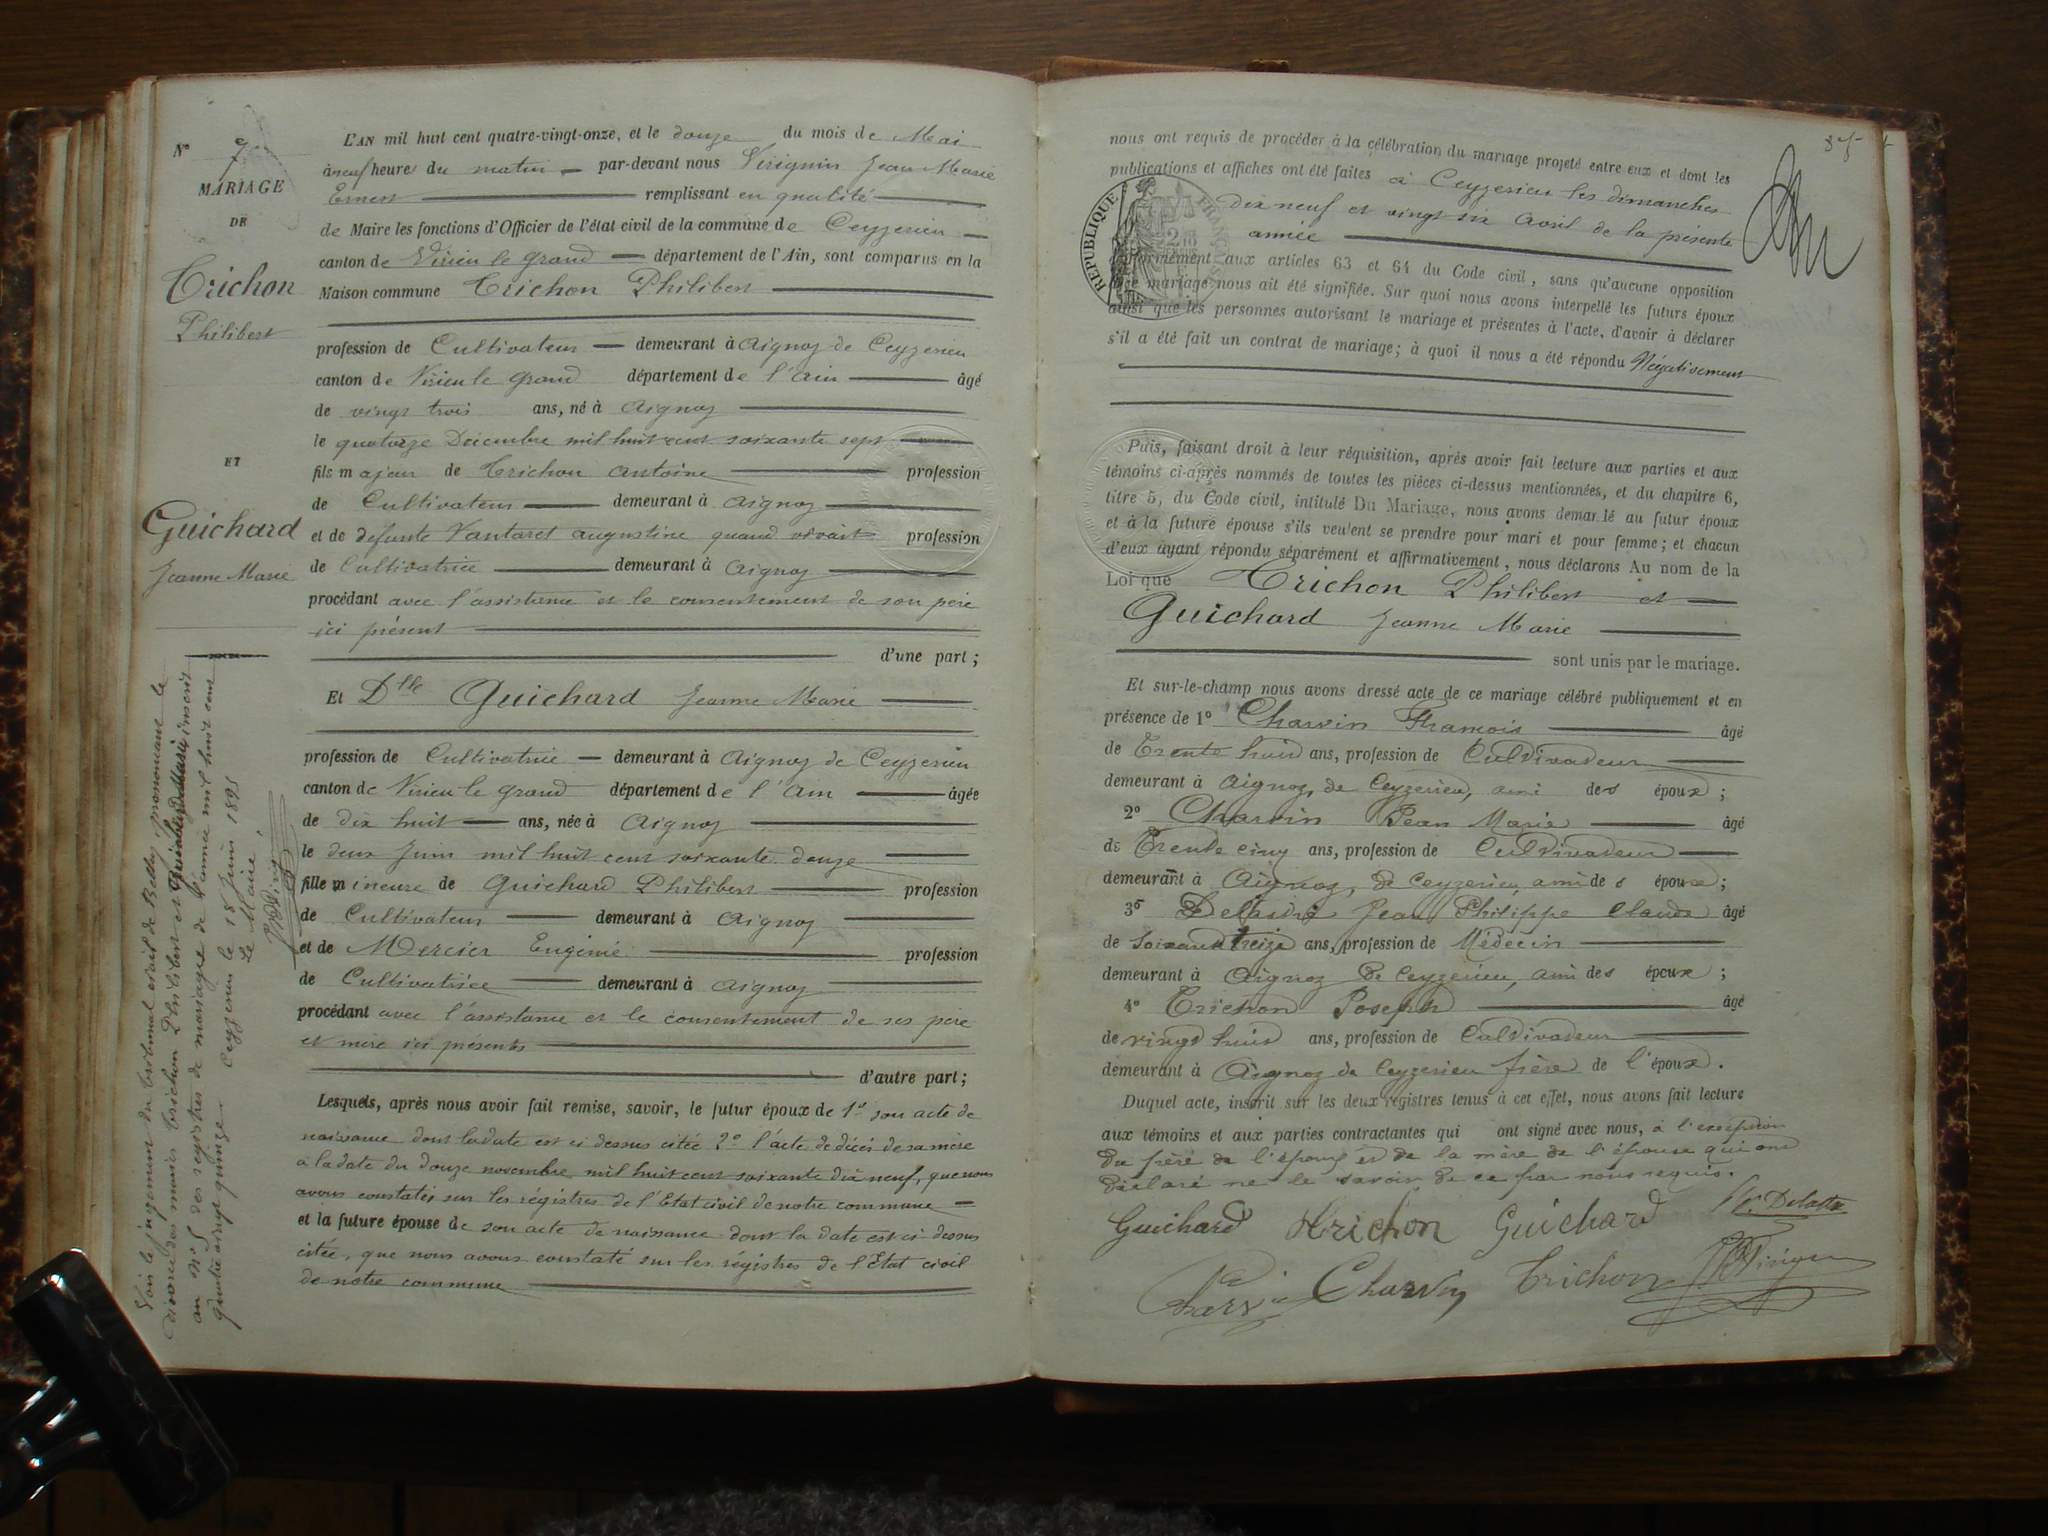 N° 7
MARIAGE
DE
Trichon
Philibert
ET
Guichard
Jeanne Marie
Voir le jugement du tribunal civil de Belley prononçant le
divorce des mariés Trichon Philibert et Guichard Marie inscrit
au N° 5 des registres de mariage de l'année mil huit cent
quatre vingt quinze. Ceyzerieu le 18 Juin 1895
Le Maire,
L'AN mil huit cent quatre-vingt-onze, et le douze du mois de Mai
à neuf heures du matin par-devant nous Vérignin Jean Marie
Ernest remplissant en qualité
de Maire les fonctions d'Officier de l'état civil de la commune de Ceyzerieu
canton de Virieu le grand département de l'Ain, sont comparus en la
Maison commune Trichon Philibert
profession de Cultivateur demeurant à Aignoz de Ceyzerieu
canton de Virieu le Grand département de l'Ain âgé
de vingt trois ans, né à Aignoz
le quatorze Décembre mil huit cent soixante sept
fils majeur de Trichon Antoine profession
de Cultivateur demeurant à Aignoz
et de défunte Vantaret Augustine quand vivait profession
de Cultivatrice demeurant à Aignoz
procédant avec l'assistance et le consentement de son père
ici présent
d'une part ;
Et Dlle Guichard Jeanne Marie
profession de Cultivatrice demeurant à Aignoz de Ceyzerieu
canton de Virieu le grand département de l'Ain âgée
de dix huit ans, née à Aignoz
le deux Juin mil huit cent soixante douze
fille mineure de Guichard Philibert profession
de Cultivateur demeurant à Aignoz
et de Mercier Eugénie profession
de Cultivatrice demeurant à Aignoz
procédant avec l'assistance et le consentement de ses père
et mère ici présents
d'autre part ;
Lesquels, après nous avoir fait remise, savoir, le futur époux de 1° son acte de
naissance dont la date est ci dessus citée 2° l'acte de décès de sa mère
à la date du douze novembre mil huit cent soixante dix neuf, que nous
avons constatés sur les régistres de l'Etat civil de notre commune
et la future épouse de son acte de naissance dont la date est ci dessus
citée, que nous avons constaté sur les régistres de l'Etat civil
de notre commune
85
nous ont requis de procéder à la célébration du mariage projeté entre eux et dont les
publications et affiches ont été faites à Ceyzerieu les dimanches
Dix neuf et vingt six Avril de la présente
année
RÉPUBLIQUE FRANÇAISE
conformément aux articles 63 et 64 du Code civil, sans qu'aucune opposition
mariage nous ait été signifiée. Sur quoi nous avons interpellé les futurs époux
ainsi que les personnes autorisant le mariage et présentes à l'acte, d'avoir à déclarer
s'il a été fait un contrat de mariage; à quoi il nous a été répondu Négativement
Puis, faisant droit à leur réquisition, après avoir fait lecture aux parties et aux
témoins ci-après nommés de toutes les pièces ci-dessus mentionnées, et du chapitre 6,
titre 5, du Code civil, intitulé Du Mariage, nous avons demandé au futur époux
et à la future épouse s'ils veulent se prendre pour mari et pour femme; et chacun
d'eux ayant répondu séparément et affirmativement, nous déclarons Au nom de la
Loi que Trichon Philibert et
Guichard Jeanne Marie
sont unis par le mariage.
Et sur-le-champ nous avons dressé acte de ce mariage célébré publiquement et en
présence de 1° Charvin François âgé
de Trente huit ans, profession de Cultivateur
demeurant à Aignoz, de Ceyzerieu, ami des époux ;
2° Charvin Jean Marie âgé
de Trente cinq ans, profession de Cultivateur
demeurant à Aignoz, de Ceyzerieu, ami des époux ;
3° Jean Philippe Claude âgé
de soixante treize ans, profession de Médecin
demeurant à Aignoz de Ceyzerieu, ami des époux ;
4° Trichon Joseph âgé
de vingt huit ans, profession de Cultivateur
demeurant à Aignoz de Ceyzerieu frère de l'époux.
Duquel acte, inscrit sur les deux registres tenus à cet effet, nous avons fait lecture
aux témoins et aux parties contractantes qui ont signé avec nous, à l'exception
du frère de l'époux et de la mère de l'épouse qui ont
déclaré ne le savoir de ce par nous requis.
Guichard Trichon Guichard
Charvin Charvin Trichon